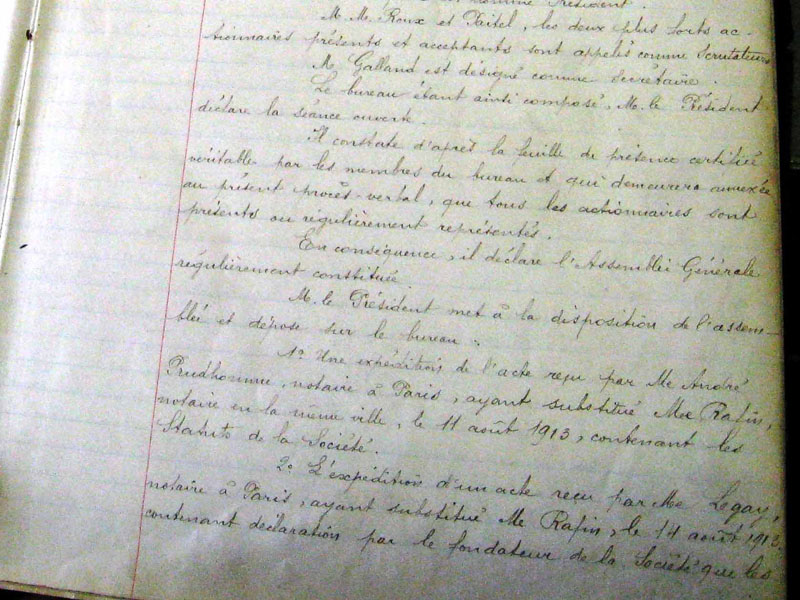 comme Président.
M.M. Roux et Paitel, les deux plus forts ac-
tionnaires présents et acceptants sont appelés comme Scrutateurs
M. Galland est désigné comme Secrétaire.
Le bureau étant ainsi composé, M. le Président
déclare la séance ouverte.
Il constate d'après la feuille de présence certifiée
véritable par les membres du bureau et qui demeurera annexée
au présent procès-verbal, que tous les actionnaires sont
présents ou régulièrement représentés.
En conséquence, il déclare l'Assemblée Générale
régulièrement constituée
M. le Président met à la disposition de l'assem-
blée et dépose sur le bureau :
1º Une expédition de l'acte reçu par Me André
Prudhomme, notaire à Paris, ayant substitué Me Rafin,
notaire en la même ville, le 11 août 1913, contenant les
Statuts de la Société.
2º L'expédition d'un acte reçu par Me Legay,
notaire à Paris, ayant substitué Me Rafin, le 14 août 1913,
contenant déclaration par le fondateur de la Société que les